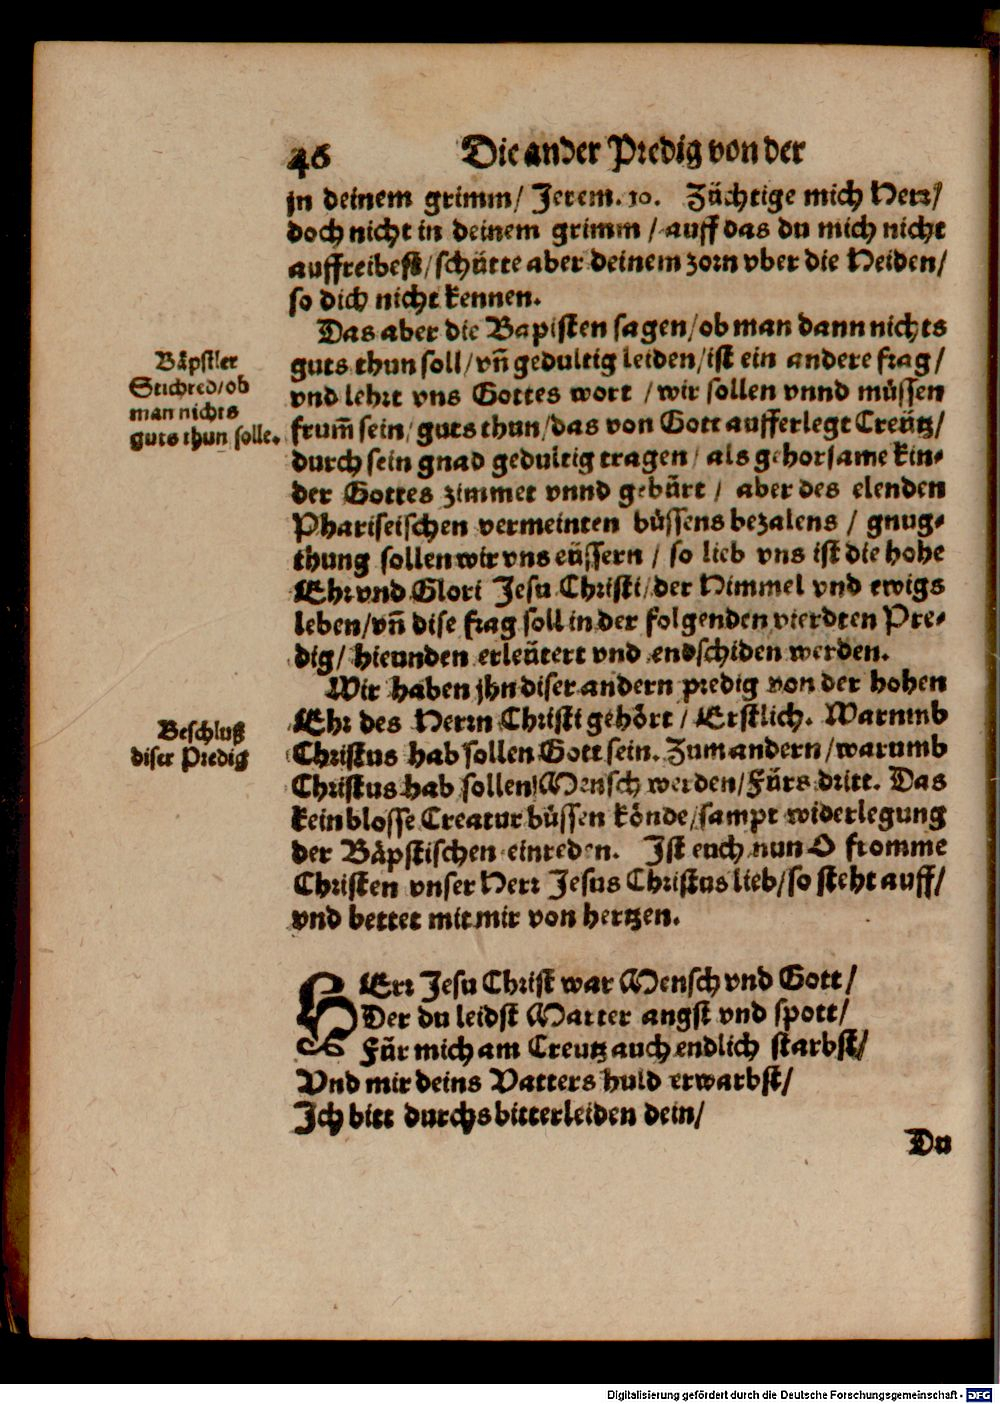 46 Die ander Predig von der
jn deinem grimm/ Jerem. 10. Züchtige mich Herr/
doch nicht in deinem grimm / auff das du mich nicht
auffreibest/schütte aber deinem zorn vber die Heiden/
so dich nicht kennen.
Das aber die Bapisten sagen/ob man dann nichts
guts thun soll/vn̄ gedultig leiden/ist ein andere frag/
vnd lehrt vns Gottes wort / wir sollen vnnd müssen
frum̄ sein/ guts thun/das von Gott aufferlegt Creütz/
durch sein gnad gedultig tragen/ als gehorsame kin-
der Gottes zimmet vnnd gebürt / aber des elenden
Phariseischen vermeinten büssens bezalens / gnug-
thung sollen wir vns eüssern / so lieb vns ist die hohe
Ehr vnd Glori Jesu Christi/der Himmel vnd ewigs
leben/vn̄ dise frag soll in der folgenden vierdten Pre-
dig/ hieunden erleütert vnd endschiden werden.
Bäpstler
Stichred/ob
man nichts
guts thun solle.
Wir haben jhn diser andern predig von der hohen
Ehr des Herrn Christi gehört / Erstlich. Warumb
Christus hab sollen Gott sein. Zum andern/warumb
Christus hab sollen Mensch werden/Fürs dritt. Das
kein blosse Creatur büssen könde/sampt widerlegung
der Bäpstischen einreden. Ist euch nun O fromme
Christen vnser Herr Jesus Christus lieb/so steht auff/
vnd bettet mit mir von hertzen.
Beschluß
diser Predig
HErr Jesu Christ war Mensch vnd Gott/
Der du leidst Marter angst vnd spott/
Für mich am Creutz auch endlich starbst/
Vnd mir deins Vatters huld erwarbst/
Ich bitt durchs bitter leiden dein/
Du
Digitalisierung gefördert durch die Deutsche Forschungsgemeinschaft - DFG